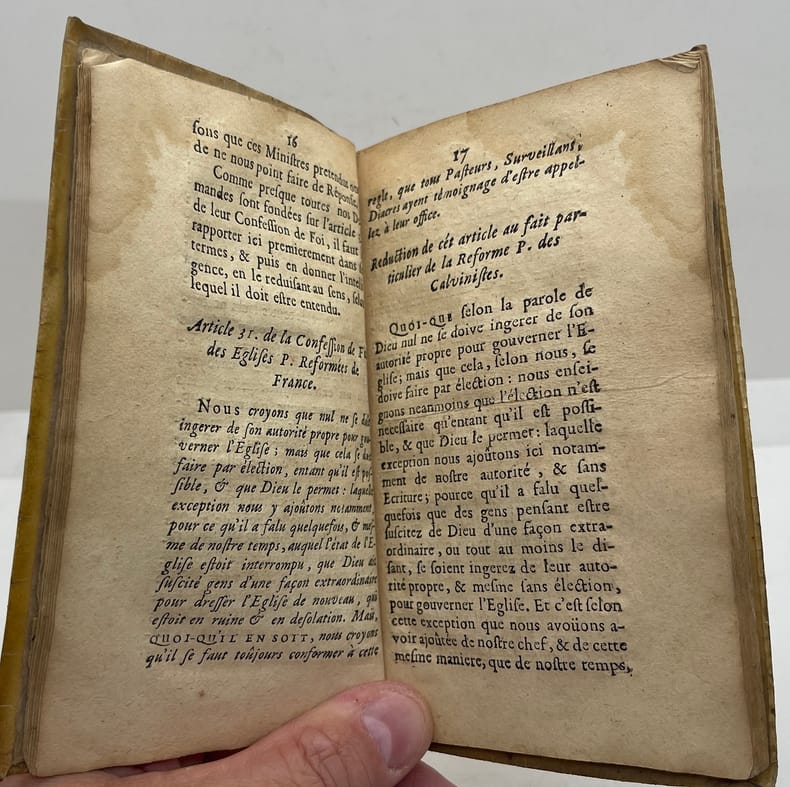 16
sons que ces Ministres pretendus
de ne nous point faire de Réponse.
Comme presque toutes nos
mandes sont fondées sur l'article
de leur Confession de Foi, il faut
rapporter ici premierement dans
termes, & puis en donner l'intel
gence, en le reduisant au sens,
lequel il doit estre entendu.
Article 31. de la Confession de
des Eglises P. Reformées de
France.
Nous croyons que nul ne se
ingerer de son autorité propre pour
verner l'Eglise; mais que cela se
faire par élection, entant qu'il est
sible, & que Dieu le permet: laquelle
exception nous y ajoûtons notamment,
pour ce qu'il a falu quelquefois, &
me de nostre temps, auquel l'état de l'E-
glise estoit interrompu, que Dieu
suscité gens d'une façon extraordinaire
pour dresser l'Eglise de nouveau, qui
estoit en ruine & en desolation. Mais,
QUOI-QU'IL EN SOIT, nous croyons
qu'il se faut toûjours conformer à cette
17
regle, que tous Pasteurs, Surveillans,
Diacres ayent témoignage d'estre appel-
lez à leur office.
Reduction de cét article au fait par-
ticulier de la Reforme P. des
Calvinistes.
QUOI-QUE selon la parole de
Dieu nul ne se doive ingerer de son
autorité propre pour gouverner l'E-
glise; mais que cela, selon nous, se
doive faire par élection: nous ensei-
gnons neanmoins que l'élection n'est
necessaire qu'entant qu'il est possi-
ble, & que Dieu le permet: laquelle
exception nous ajoûtons ici notam-
ment de nostre autorité, & sans
Ecriture; pource qu'il a falu quel-
quefois que des gens pensant estre
suscitez de Dieu d'une façon extra-
ordinaire, ou tout au moins le di-
sant, se soient ingerez de leur auto-
rité propre, & mesme sans élection,
pour gouverner l'Eglise. Et c'est selon
cette exception que nous avoüons a-
voir ajoûtée de nostre chef, & de cette
mesme maniere, que de nostre temps,